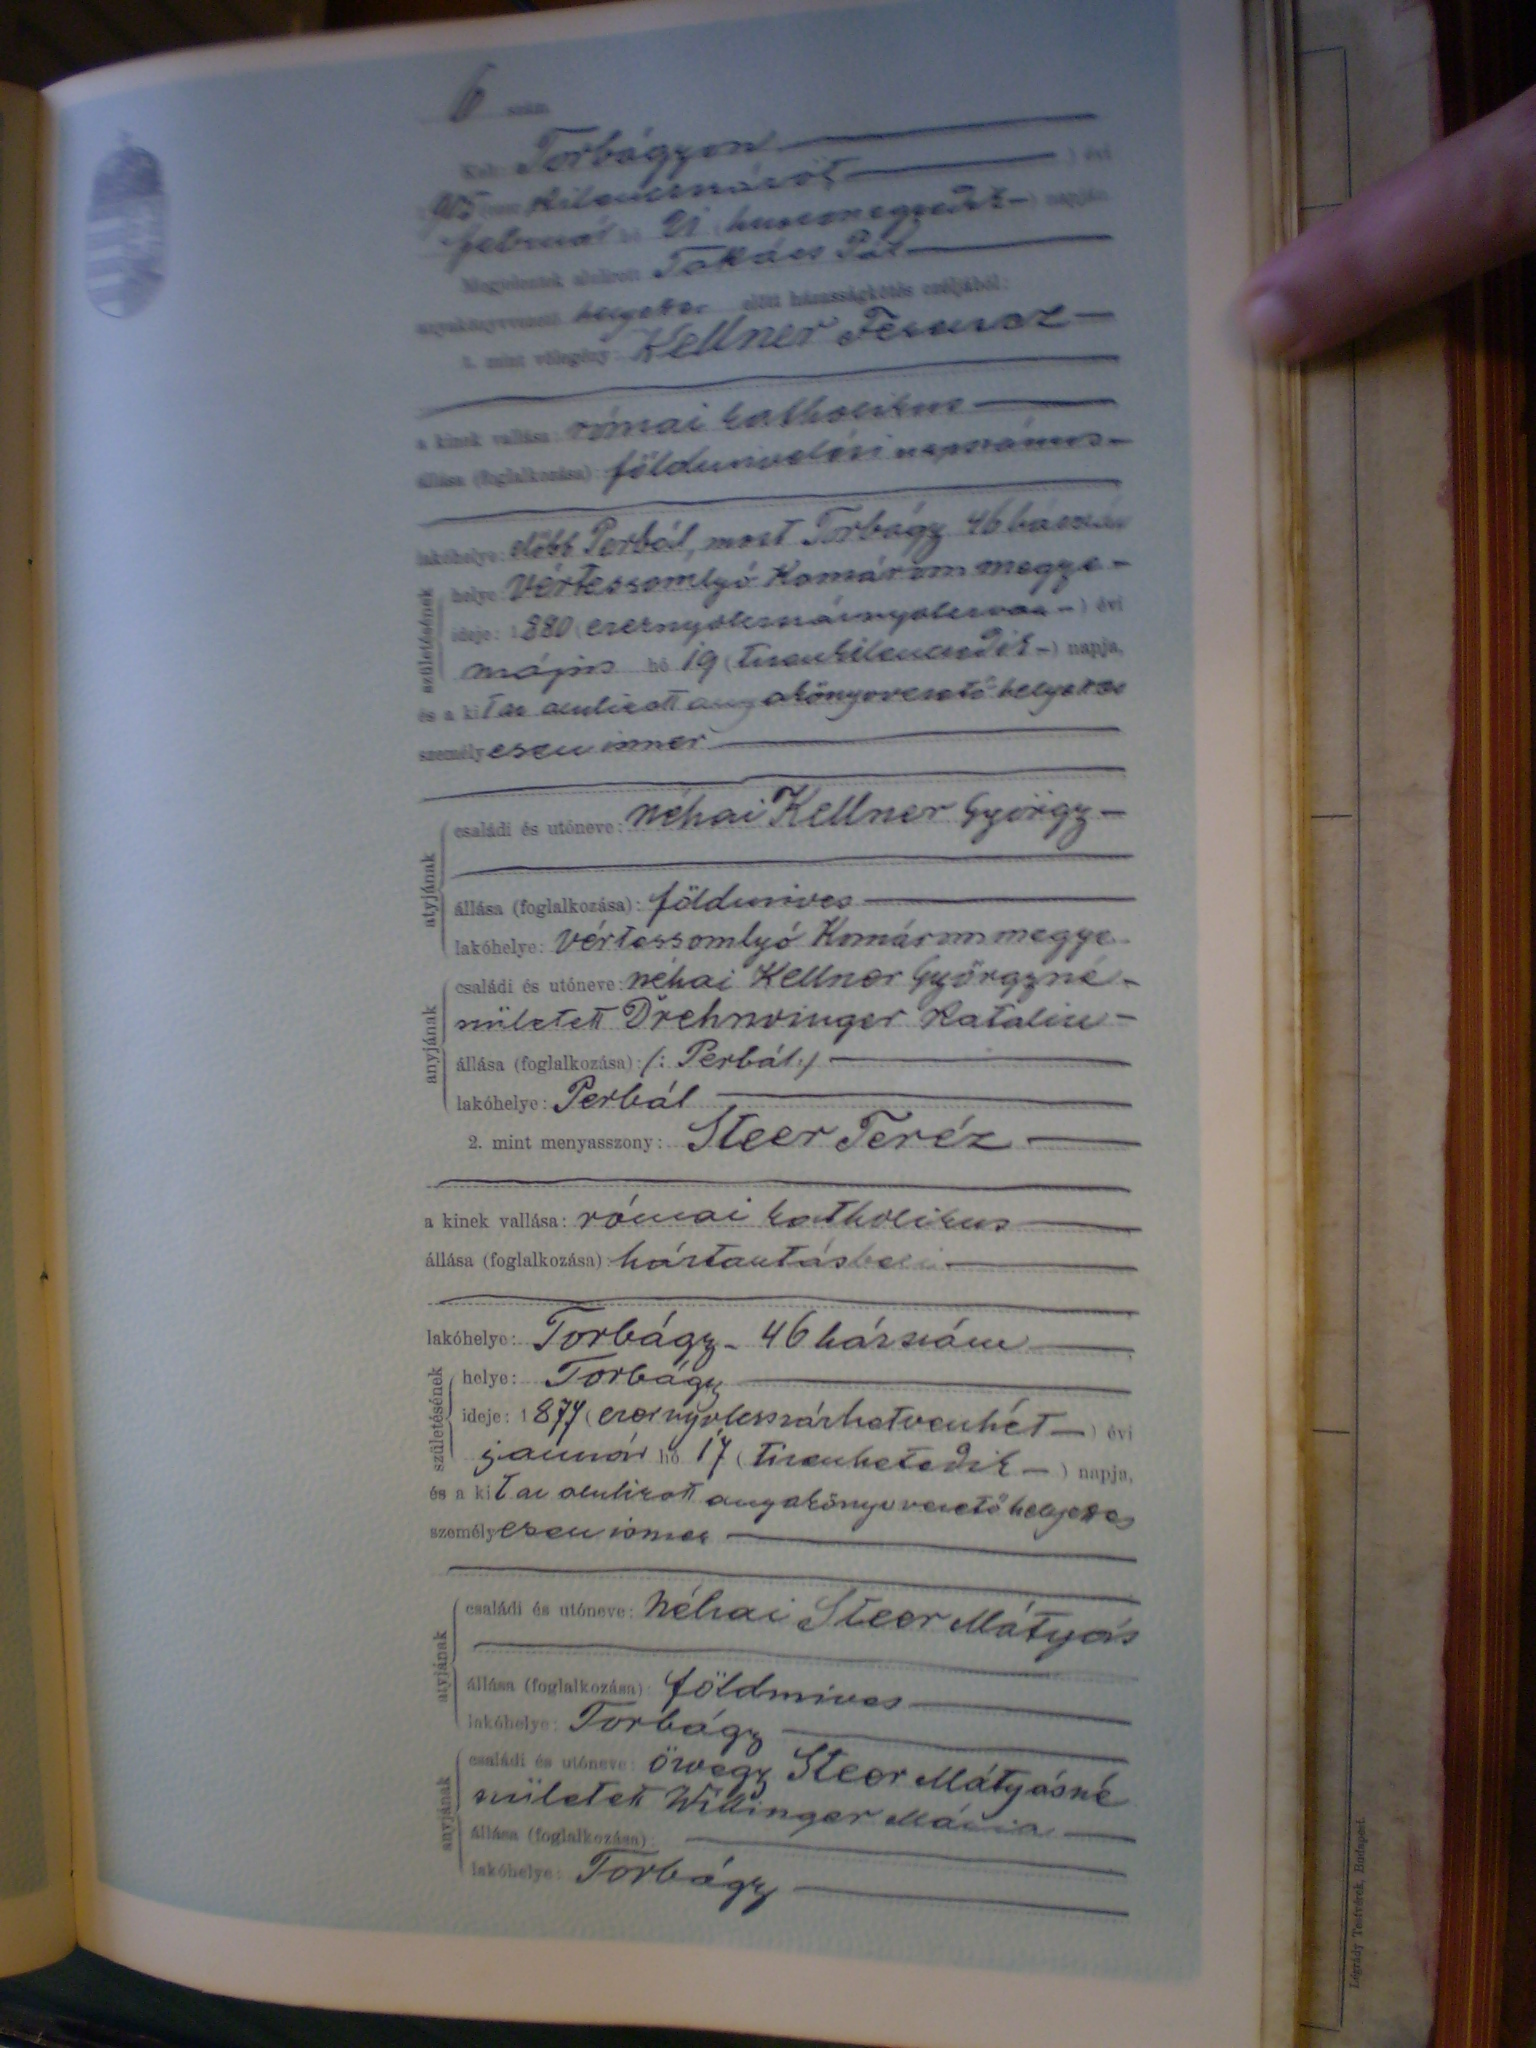 6 szám.
Kelt: Torbágyon
1905 (ezer kilencszázöt) évi
február hó 21 (huszonegyedik) napján
Megjelentek alulírott Takács Pál
anyakönyvvezető helyettes előtt házasságkötés czéljából:
1. mint vőlegény: Kellner Ferencz
a kinek vallása: római katholikus
állása (foglalkozása): földmivelési napszámos
lakóhelye: előbb Perbál, most Torbágy 46 házszám
születésének
helye: Vértessomlyó Komárom megye
ideje: 1880 (ezernyolcszáznyolcvan) évi
május hó 19 (tizenkilencedik) napja,
és a kit az alulirott anyakönyvvezető helyettes
személyesen ismer
atyjának
családi és utóneve: néhai Kellner György
állása (foglalkozása): földmives
lakóhelye: Vértessomlyó Komárom megye
anyjának
családi és utóneve: néhai Kellner Györgyné
született Drehwinger Katalin
állása (foglalkozása): /: Perbál :/
lakóhelye: Perbál
2. mint menyasszony: Steer Teréz
a kinek vallása: római katholikus
állása (foglalkozása): háztartásbeli
lakóhelye: Torbágy 46 házszám
születésének
helye: Torbágy
ideje: 1877 (ezernyolcszázhetvenhét) évi
január hó 17 (tizenhetedik) napja,
és a kit az alulirott anyakönyvvezető helyettes
személyesen ismer
atyjának
családi és utóneve: Néhai Steer Mátyás
állása (foglalkozása): földmives
lakóhelye: Torbágy
anyjának
családi és utóneve: özvegy Steer Mátyásné
született Willinger Mária
állása (foglalkozása):
lakóhelye: Torbágy
Légrády Testvérek, Budapest.